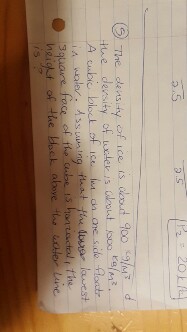 25
25
P2 20
⑤ The density of ice is about 900 kg/m³ d
the density of water is about 1000 kg/m³.
A cubic block of ice 1m on one side floats
in water. Assuming that the lowest
square face of the cube is horizontal, the
height of the block above the water line
is